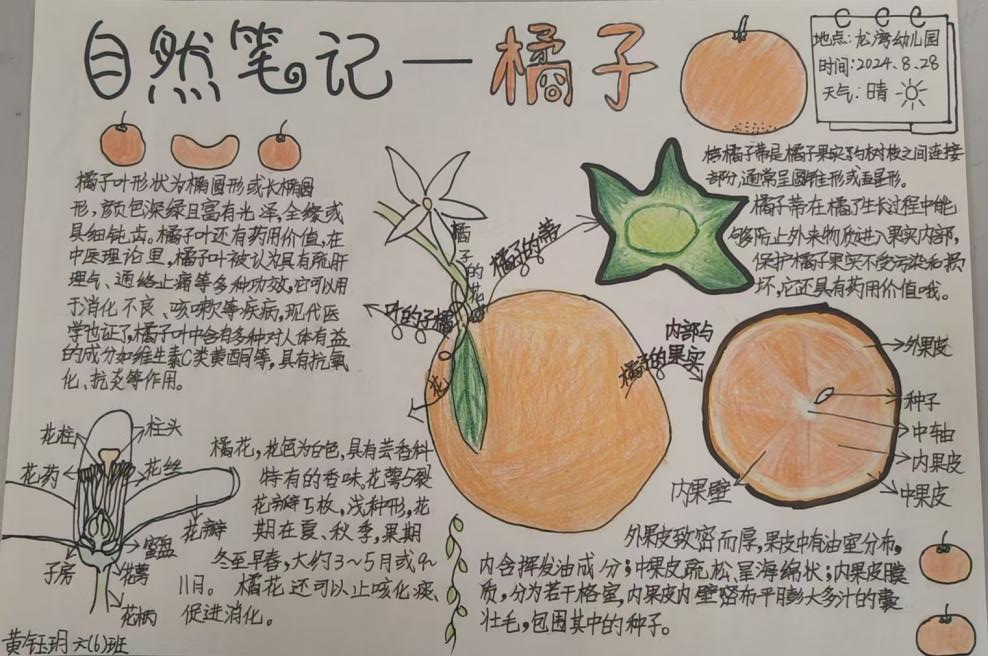 自然笔记—橘子
地点:龙湾幼儿园
时间:2024.8.28
天气:晴
橘子叶形状为椭圆形或长椭圆
形,颜包深绿且富有光泽,全缘或
具细钝齿。橘子叶还有药用价值,在
中医理论里,橘子叶被认为具有疏肝
理气、通络止痛等多种功效,它可以用
于消化不良、咳嗽等疾病,现代医
学也证了,橘子叶中含有多种对人体有益
的成分如维生素C类黄酮等,具有抗氧
化、抗炎等作用。
橘子蒂是橘子果实与树枝之间连接
部分,通常呈圆锥形或五星形。
橘子蒂在橘子生长过程中能
够防止外来物质进入果实内部,
保护橘子果实不受污染和损
坏,它还具有药用价值哦。
橘子的花
橘子的蒂
叶的子橘
内部与
橘子的果实
外果皮
种子
中轴
内果皮
中果皮
内果壁
花柱
柱头
花药
花丝
花瓣
蜜盘
子房
花萼
花柄
橘花,花色为白色,具有芸香科
特有的香味,花萼5裂
花瓣5枚,浅种形,花
期在夏、秋季,果期
冬至早春,大约3~5月或9~
11月。橘花还可以止咳化痰、
促进消化。
外果皮致密而厚,果皮中有油室分布,
内含挥发油成分;中果皮疏松、呈海绵状;内果皮膜
质,分为若干格室,内果皮内壁密布平月膨大多汁的囊
壮毛,包围其中的种子。
黄钰玥 六(6)班